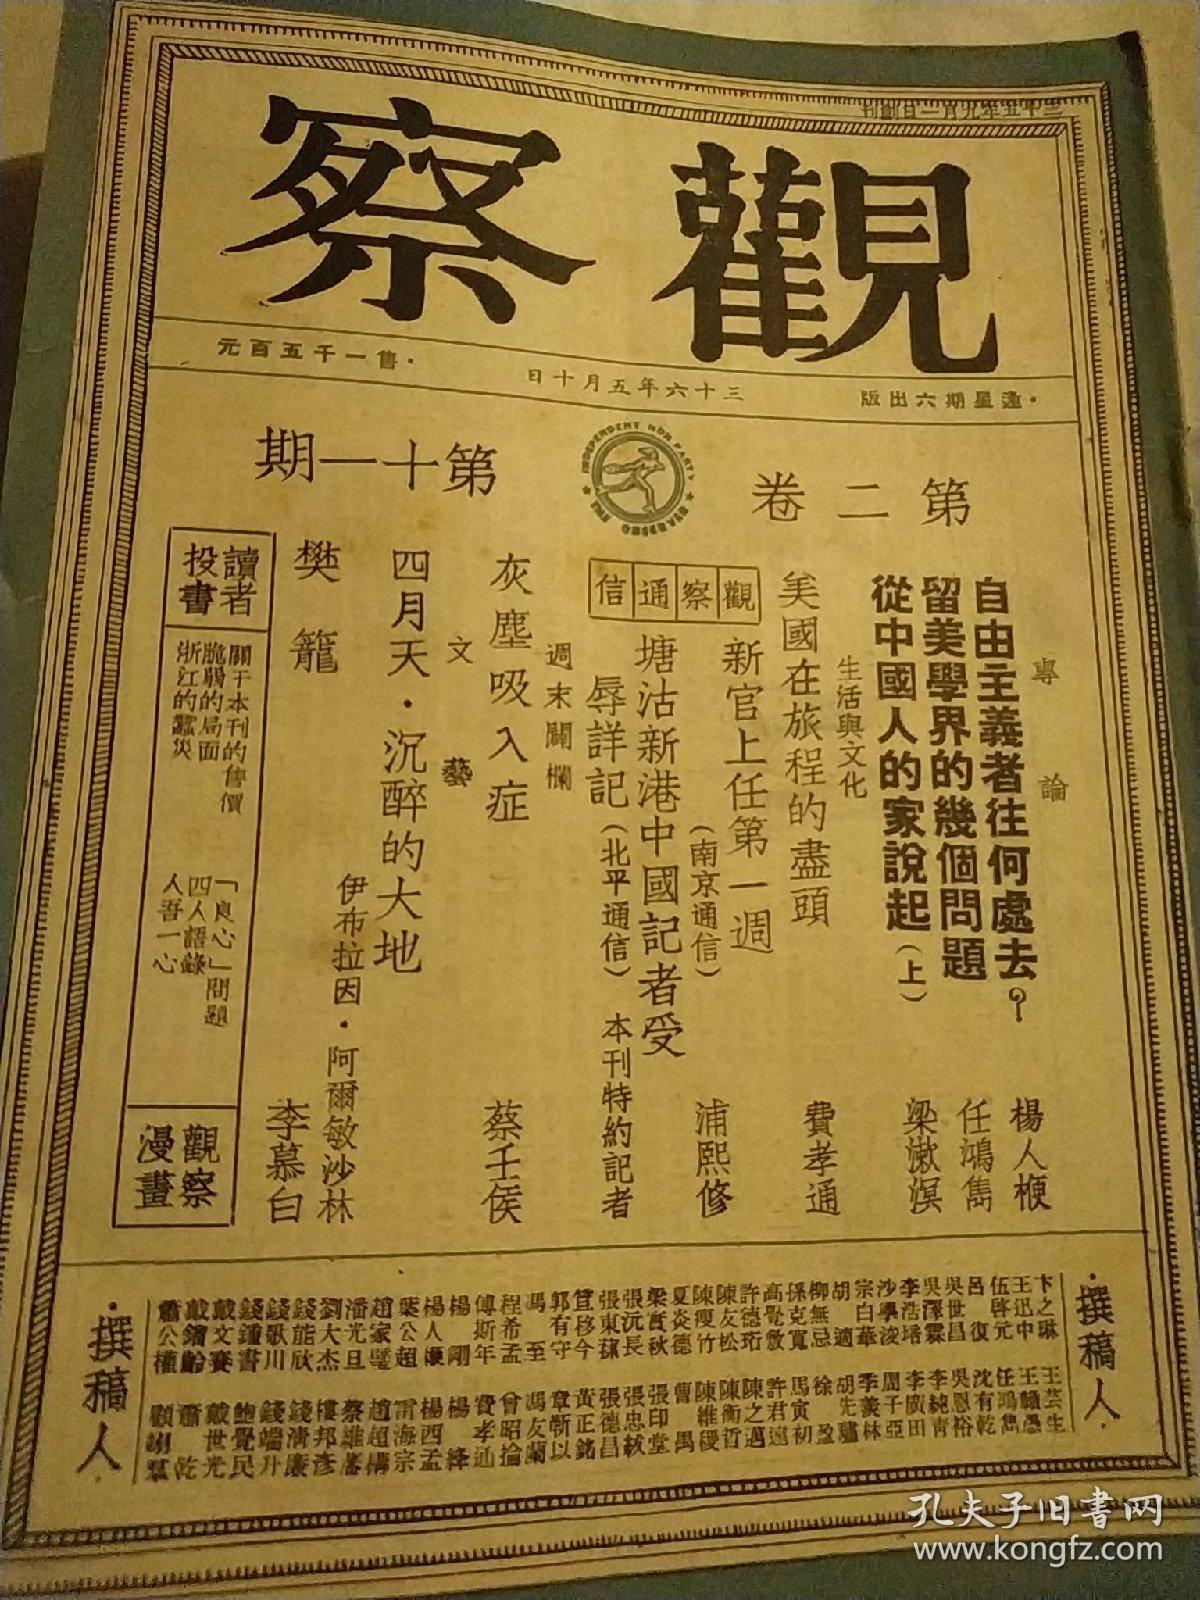 三十五年九月一日創刊
觀察
·逢星期六出版
三十六年五月十日
·售一千五百元
第二卷
第十一期
INDEPENDENT NON PARTY
專論
自由主義者往何處去？ 楊人楩
留美學界的幾個問題 任鴻雋
從中國人的家說起(上) 梁漱溟
生活與文化
美國在旅程的盡頭 費孝通
觀察通信
新官上任第一週(南京通信) 浦熙修
塘沽新港中國記者受
辱詳記(北平通信) 本刊特約記者
週末闌欄
灰塵吸入症 蔡壬侯
文藝
四月天·沉醉的大地
伊布拉因·阿爾敏沙林
樊籠 李慕白
讀者投書
關于本刊的售價
脆弱的局面
浙江的蠶災
「良心」問題
四人語錄
人吾一心
觀察漫畫
·撰稿人·
卞之琳 王芸生
王迅中 王贛愚
伍啓元 任鴻雋
呂復 沈有乾
吳世昌 吳恩裕
吳澤霖 李純青
李浩培 李廣田
沙學浚 周子亞
宗白華 季羨林
胡適 胡先驌
柳無忌 徐盈
孫克寬 馬寅初
高覺敷 許君遠
許德珩 陳之邁
陳友松 陳衡哲
陳瘦竹 陳維稷
夏炎德 曹禺
梁實秋 張印堂
張沅長 張忠紱
張東蓀 張德昌
笪移今 黃正銘
郭有守 章靳以
馮至 馮友蘭
程希孟 曾昭掄
傅斯年 費孝通
楊剛 楊絳
楊人楩 楊西孟
葉公超 雷海宗
趙家璧 趙超構
潘光旦 蔡維藩
劉大杰 樓邦彥
錢能欣 錢清廉
錢歌川 錢端升
錢鍾書 鮑覺民
戴文賽 戴世光
戴鎦齡 蕭乾
蕭公權 顧翊羣
·撰稿人·
孔夫子旧书网
www.kongfz.com